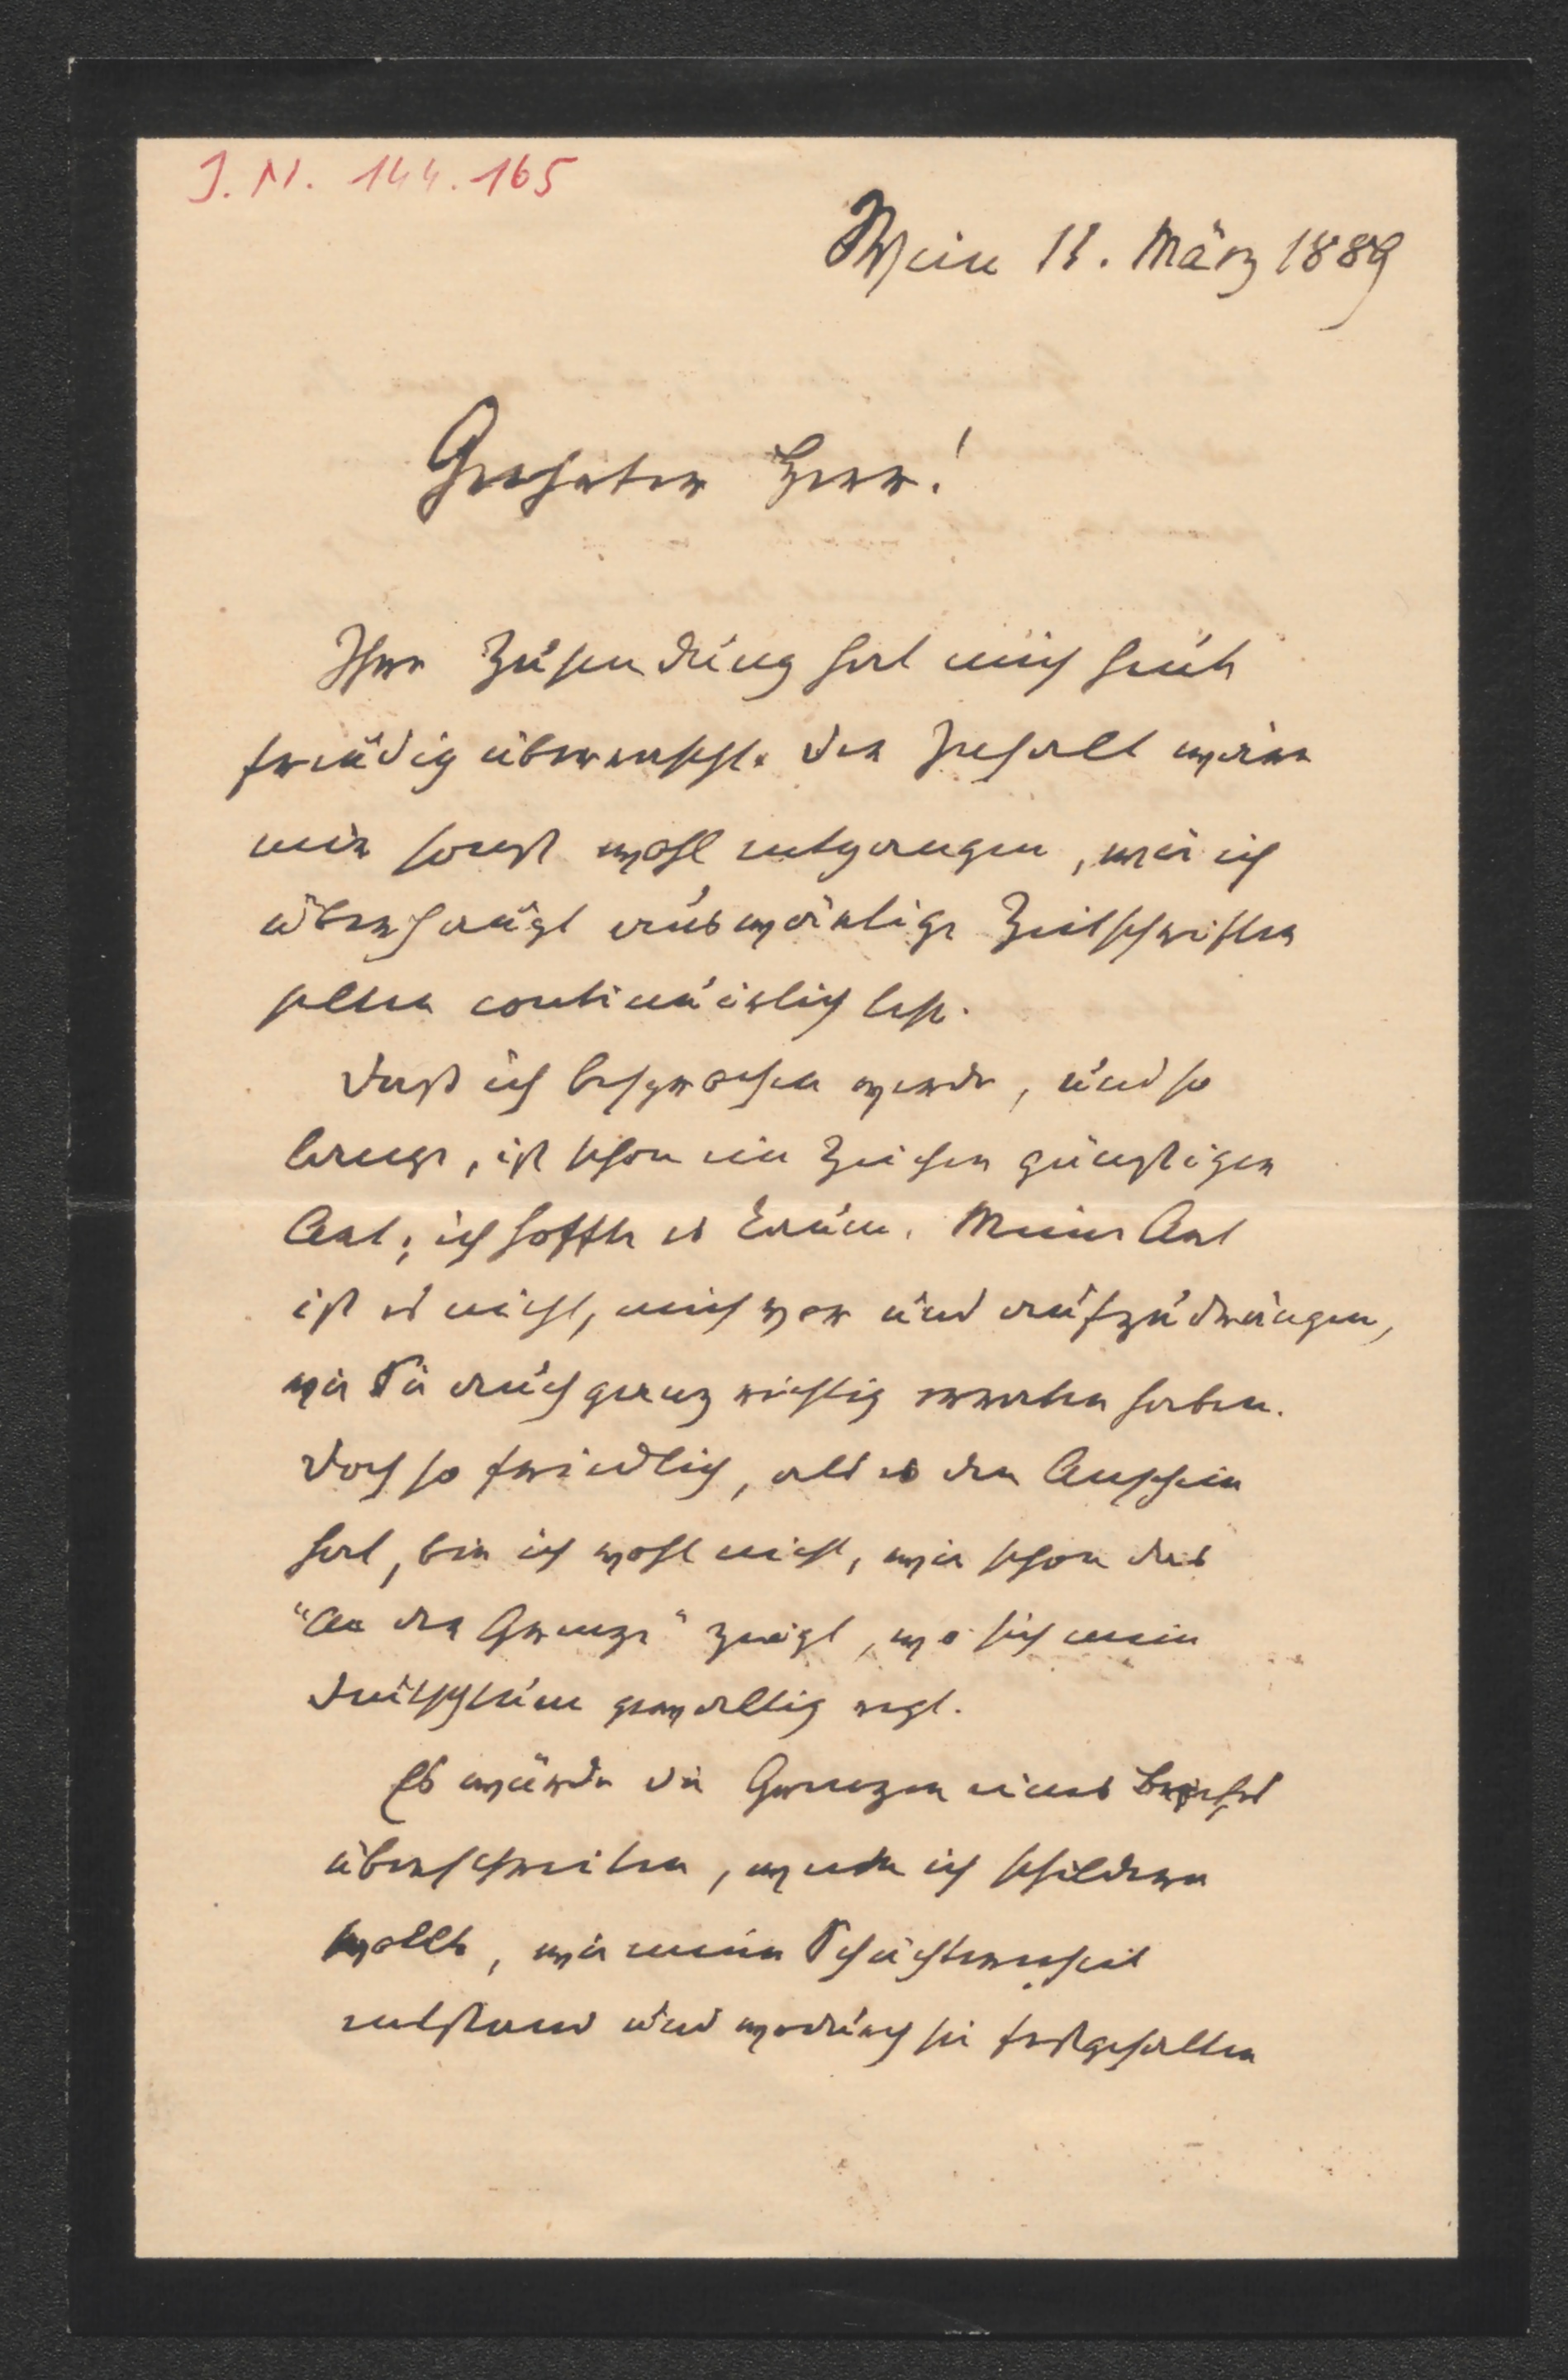 J. N. 144.165
Wien 11. März 1889
Geehrter Herr!
Ihre Zusendung hat mich heute
freudig überrascht. Der Inhalt wäre
mir sonst wohl entgangen, wie ich
überhaupt auswärtige Zeitschriften
selten continuirlich lese.
Daß ich besprochen werde, und so
lange, ist schon ein Zeichen günstiger
Art; ich hoffte es kaum. Meine Art
ist es nicht, mich vor und aufzudrängen,
wie Sie auch ganz richtig erraten haben.
Doch so friedlich, als es den Anschein
hat, bin ich wohl nicht, wie schon das
"An der Grenze" zeigt, wo sich mein
Deutschtum gewaltig regt.
Es würde die Grenzen eines Briefes
überschreiten, wenn ich schildern
wollte, wie meine Schüchternheit
entstand und wodurch sie festgehalten